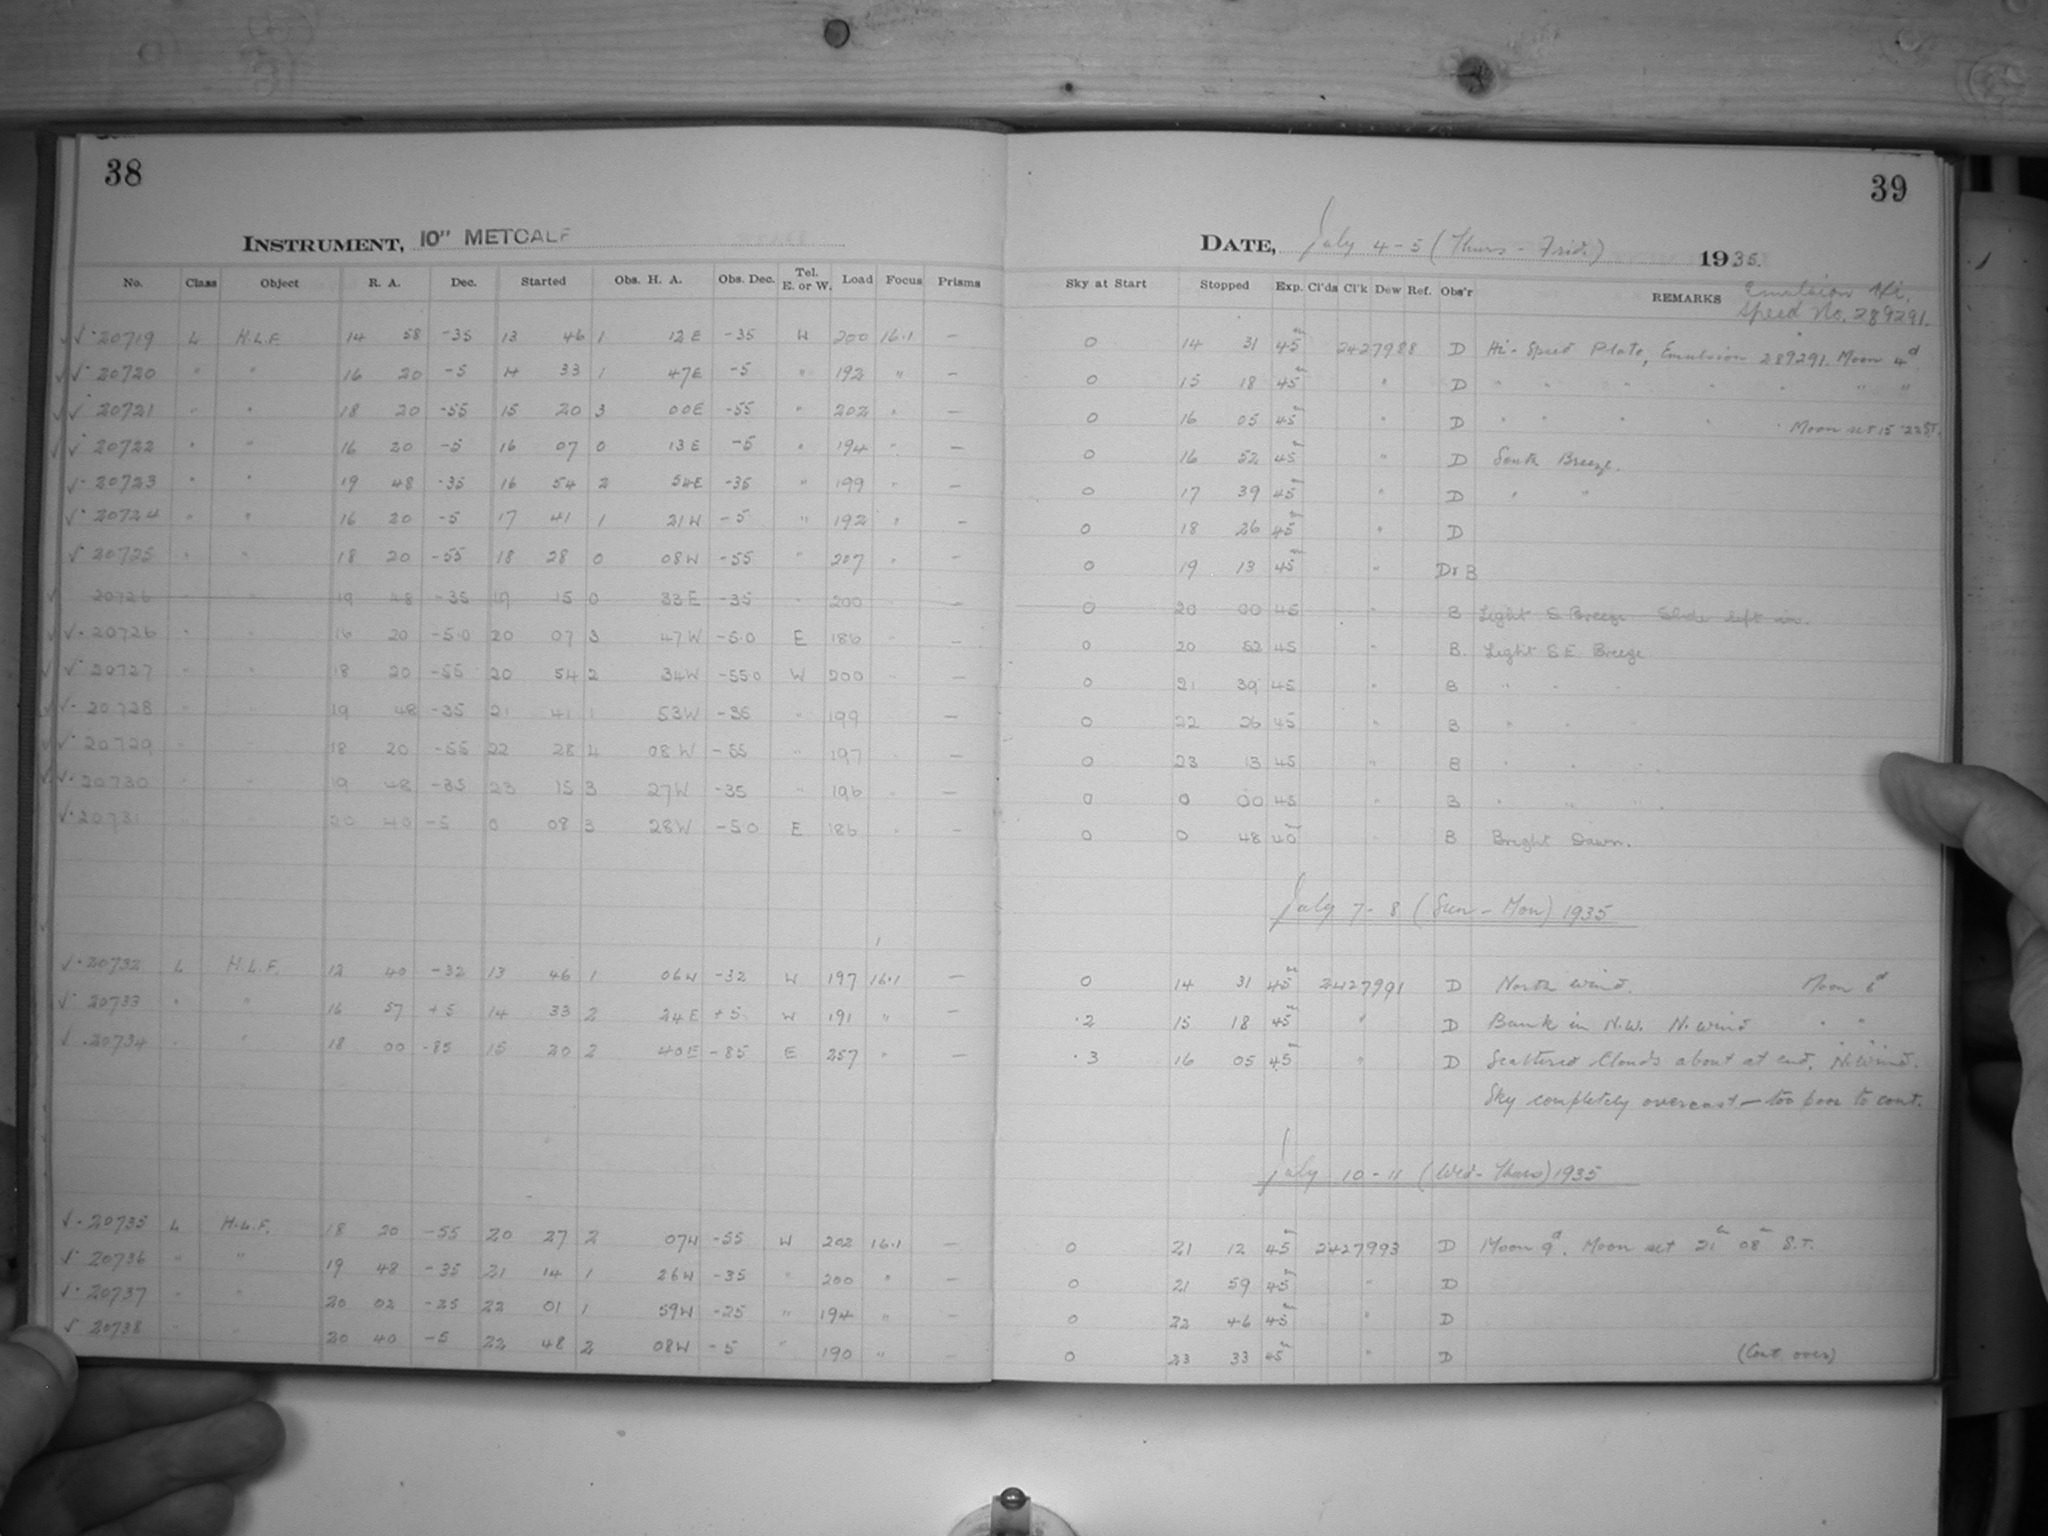 38
INSTRUMENT, 10" METCALF
No. Class Object R. A. Dec. Started Obs. H. A. Obs. Dec. Tel. E. or W. Load Focus Prisms
√· 20719 L H.L.F. 14 58 -35 13 46 1 12E -35 W 200 16.1 —
√· 20720 " " 16 20 -5 14 33 1 47E -5 " 192 " —
√· 20721 " " 18 20 -55 15 20 3 00E -55 " 202 " —
√· 20722 " " 16 20 -5 16 07 0 13E -5 " 194 " —
√· 20723 " " 19 48 -35 16 54 2 54E -35 " 199 " —
√· 20724 " " 16 20 -5 17 41 1 21W -5 " 192 " —
√· 20725 " " 18 20 -55 18 28 0 08W -55 " 207 " —
20726 " " 19 48 -35 19 15 0 33E -35 " 200 —
√· 20726 " " 16 20 -5.0 20 07 3 47W -5.0 E 186 " —
√· 20727 " " 18 20 -55 20 54 2 34W -55.0 W 200 " —
√· 20728 " " 19 48 -35 21 41 1 53W -35 " 199 —
√· 20729 " " 18 20 -55 22 28 4 08W -55 " 197 —
√· 20730 " " 19 48 -35 23 15 3 27W -35 " 196 " —
√· 20731 " " 20 40 -5 0 08 3 28W -5.0 E 186 " —
√· 20732 L H.L.F. 12 40 -32 13 46 1 06W -32 W 197 16.1 —
√· 20733 " " 16 57 +5 14 33 2 24E +5 W 191 " —
√· 20734 " " 18 00 -85 15 20 2 40E -85 E 257 " —
√· 20735 L H.L.F. 18 20 -55 20 27 2 07W -55 W 202 16.1 —
√· 20736 " " 19 48 -35 21 14 1 26W -35 " 200 " —
√· 20737 " " 20 02 -25 22 01 1 59W -25 " 194 " —
√ 20738 " " 20 40 -5 22 48 2 08W -5 " 190 " —
39
DATE, July 4-5 (Thurs - Frid.) 1935.
Sky at Start Stopped Exp. Cl'ds Cl'k Dew Ref. Obs'r REMARKS Emulsion Hi.
Speed No. 289291.
0 14 31 45m 2427988 D Hi-Speed Plate, Emulsion 289291. Moon 4d
0 15 18 45m " D " " " " " " "
0 16 05 45m " D " " " " " Moon set 15 22 S.T.
0 16 52 45m " D South Breeze.
0 17 39 45m " D " "
0 18 26 45m " D
0 19 13 45m " D & B
0 20 00 45 " B Light S. Breeze Slide left in.
0 20 52 45 " B. Light S E Breeze
0 21 39 45 " B " " "
0 22 26 45 " B " " "
0 23 13 45 " B " " "
0 0 00 45 " B " " "
0 0 48 40m " B Bright Dawn.
July 7-8 (Sun - Mon) 1935
0 14 31 45m 2427991 D North wind. Moon 6d
.2 15 18 45m " D Bank in N.W. N. wind " "
.3 16 05 45m " D Scattered Clouds about at end. N. Wind.
Sky completely overcast — too poor to cont.
July 10-11 (Wed - Thurs) 1935
0 21 12 45m 2427993 D Moon 9d. Moon set 21h 08m S.T.
0 21 59 45m " D
0 22 46 45m " D
0 23 33 45m " D (Cont. over)